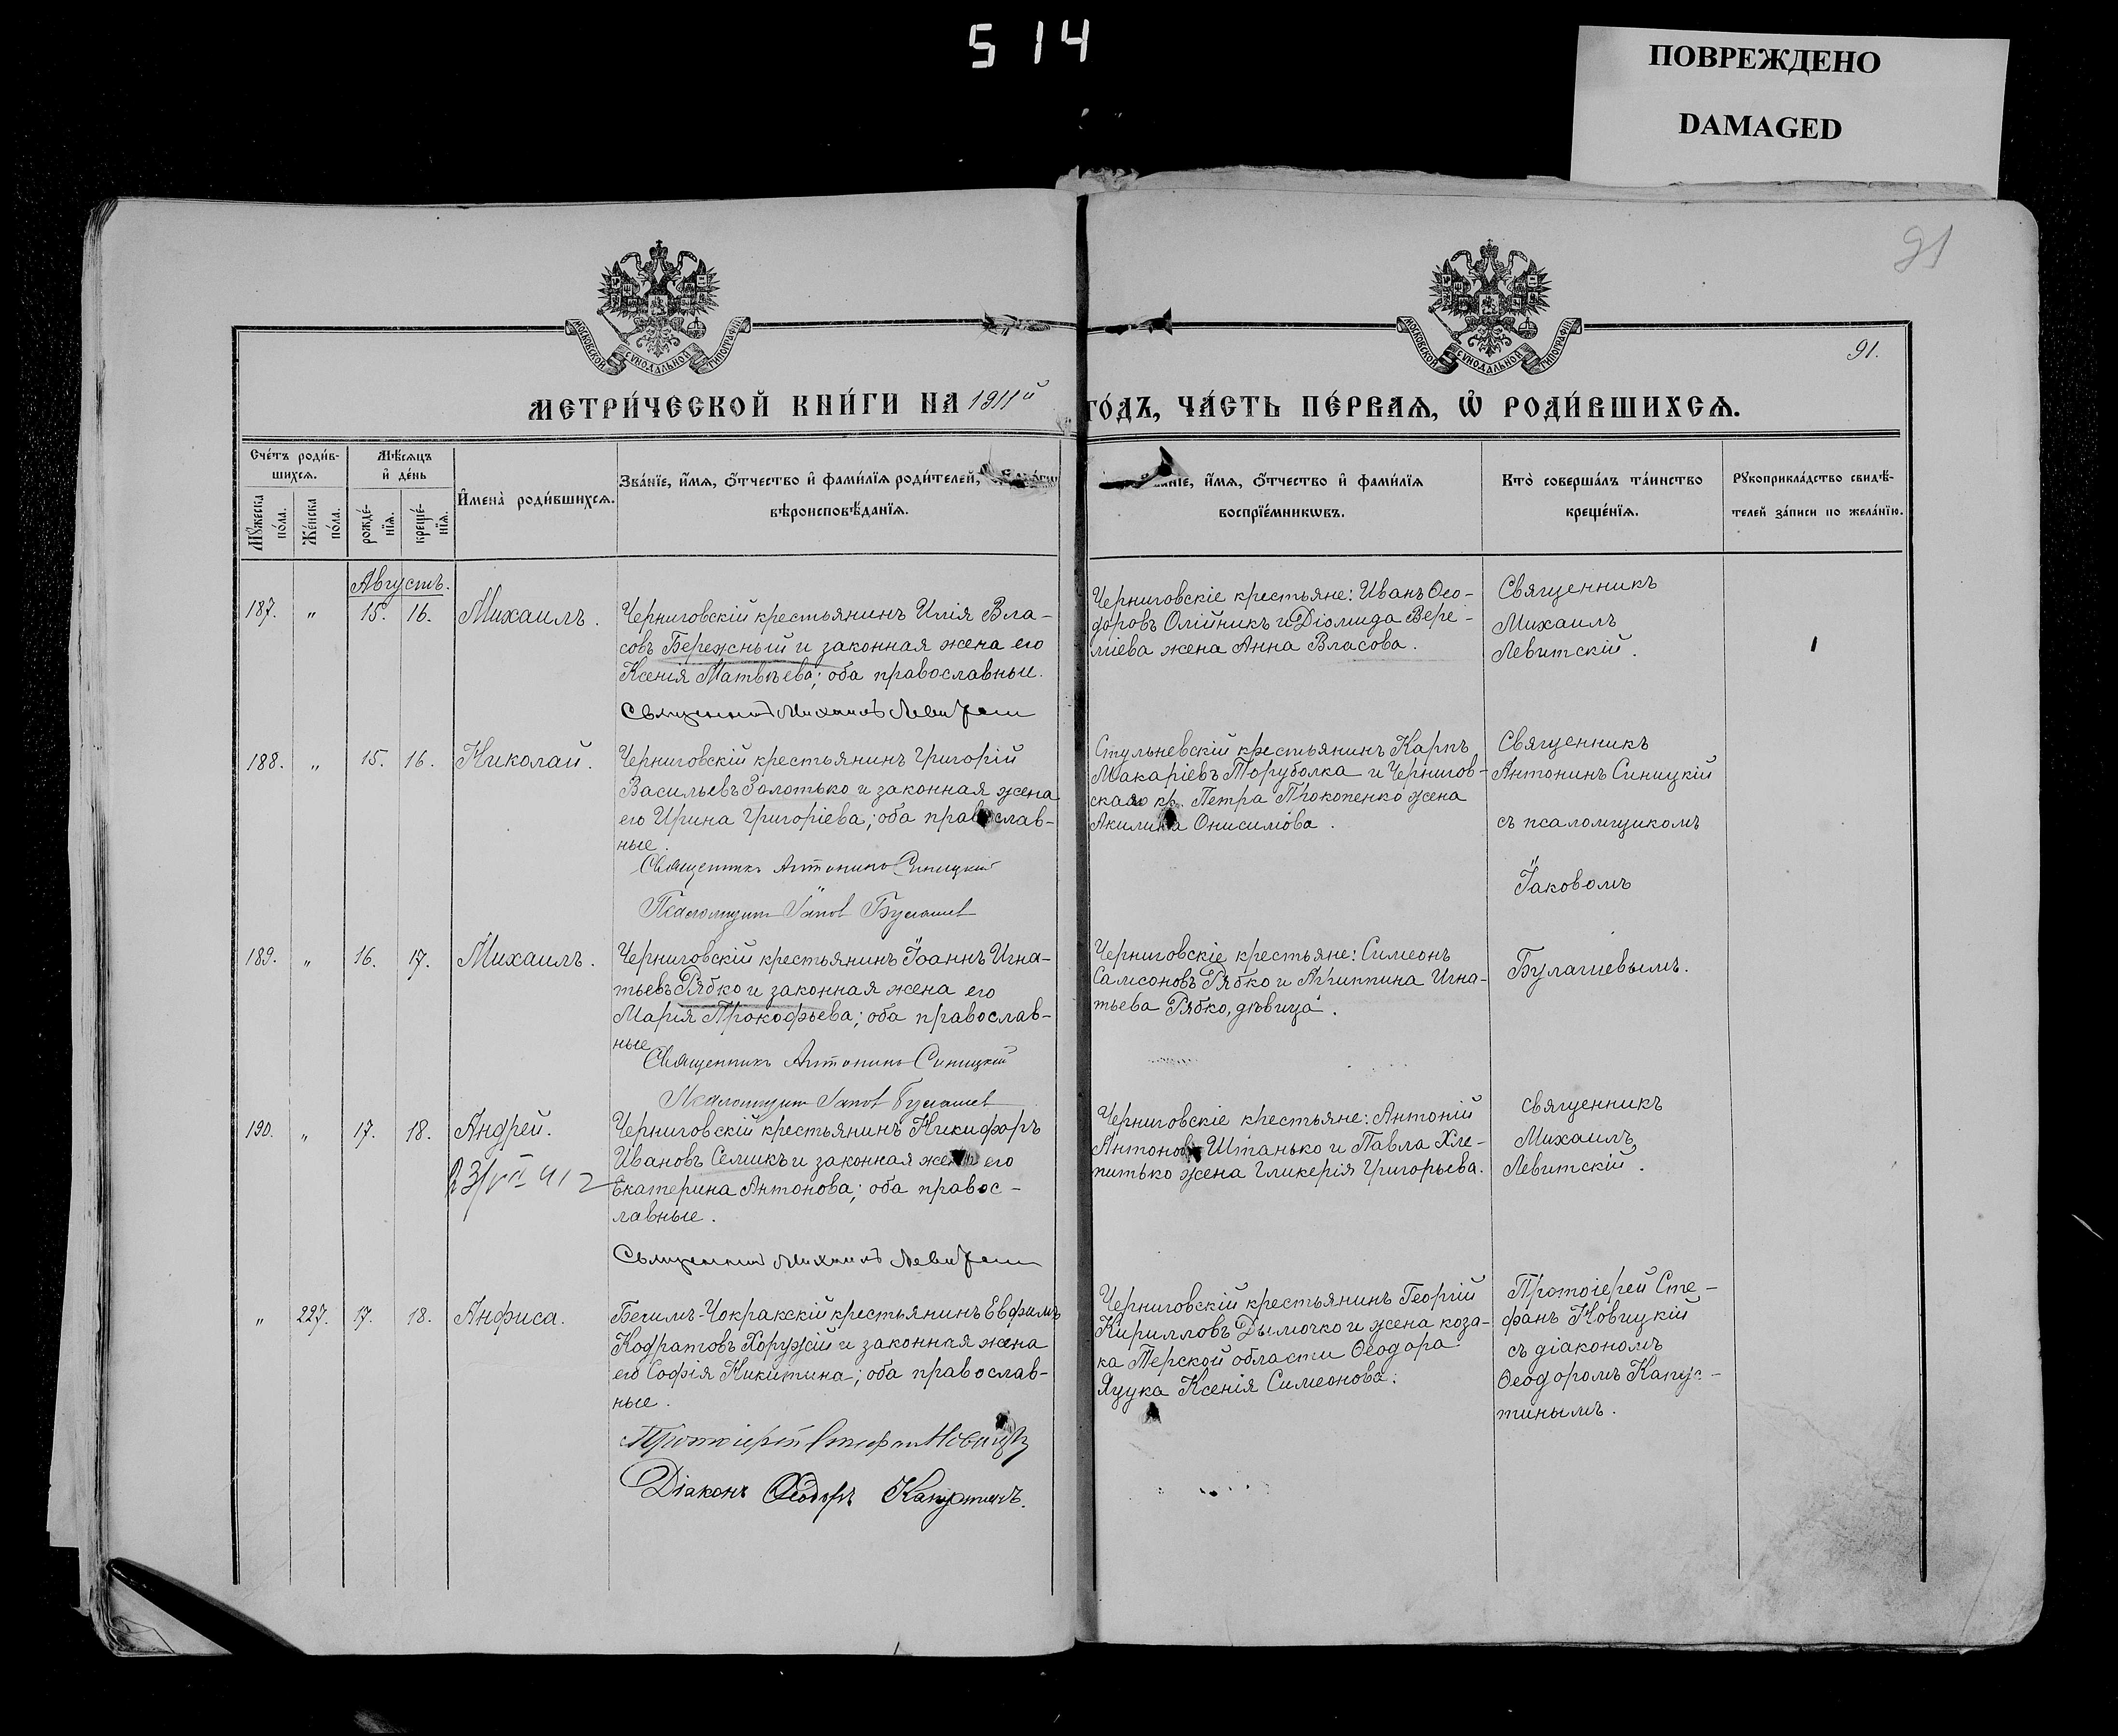 514
ПОВРЕЖДЕНО
DAMAGED
91
91.
МОСКОВСКОЙ СѴНОДАЛЬНОЙ ТИПОГРАФІИ
МОСКОВСКОЙ СѴНОДАЛЬНОЙ ТИПОГРАФІИ
МЕТРИ́ЧЕСКОЙ КНИ́ГИ НА 1911й ГО́ДЪ, ЧА́СТЬ ПЕ́РВАѦ, Ѡ҆ РОДИ́ВШИХСѦ.
Сче́тъ роди́в-
шихсѧ.
Мꙋ́жеска по́ла.
Же́нска по́ла.
Мѣ́сѧцъ
и҆ де́нь
рожде́-
нїѧ.
креще́-
нїѧ.
И҆мена̀ роди́вшихсѧ.
Зва́нїе, и҆́мѧ, ѻ҆́тчество и҆ фами́лїѧ роди́телей,
вѣроисповѣ́данїѧ.
и҆́мѧ, ѻ҆́тчество и҆ фами́лїѧ
воспрїе́мникѡвъ.
Кто̀ соверша́лъ та́инство
креще́нїѧ.
Рꙋкоприкла́дство свидѣ́-
телей за́писи по жела́нїю.
Августъ.
187. „ 15. 16. Михаилъ.
Черниговскій крестьянинъ Илія Вла-
совъ Бережный и законная жена его
Ксенія Матвѣева; оба православные.
Священникъ Михаилъ Левитскій
Черниговскіе крестьяне: Иванъ Ѳео-
доровъ Олійникъ и Діомида Вере-
міева жена Анна Власова.
Священникъ
Михаилъ
Левитскій.
188. „ 15. 16. Николай.
Черниговскій крестьянинъ Григорій
Васильевъ Золотько и законная жена
его Ирина Григоріева; оба православ-
ные.
Священникъ Антонинъ Синицкій
Псаломщикъ Іаковъ Булашевъ
Стульневскій крестьянинъ Карпъ
Макаріевъ Торуболка и Чернигов-
скаго кр. Петра Прокопенко жена
Акилина Онисимова.
Священникъ
Антонинъ Синицкій
съ псаломщикомъ
Іаковомъ
Булашевымъ.
189. „ 16. 17. Михаилъ.
Черниговскій крестьянинъ Іоаннъ Игна-
тьевъ Рябко и законная жена его
Марія Прокофьева; оба православ-
ные
Священникъ Антонинъ Синицкій
Псаломщикъ Іаковъ Булашевъ
Черниговскіе крестьяне: Симеонъ
Самсоновъ Рябко и Агриппина Игна-
тьева Рябко, дѣвица.
190. „ 17. 18. Андрей.
Черниговскій крестьянинъ Никифоръ
Ивановъ Семикъ и законная жена его
Екатерина Антонова; оба правос-
лавные.
Священникъ Михаилъ Левитскій
Черниговскіе крестьяне: Антоній
Антоновъ Штанько и Павла Хле-
питько жена Гликерія Григорьева.
священникъ
Михаилъ
Левитскій.
„ 227. 17. 18. Анфиса.
Бегимъ-Чокракскій крестьянинъ Евфимъ
Кодратовъ Хоружій и законная жена
его Софія Никитина; оба православ-
ные.
Протоіерей Стефанъ Новицкій
Діаконъ Ѳеодоръ Капустинъ.
Черниговскій крестьянинъ Георгій
Кирилловъ Дымочко и жена коза-
ка Терской области Ѳеодора
Яцука Ксенія Симеонова.
Протоіерей Сте-
фанъ Новицкій
съ діакономъ
Ѳеодоромъ Капус-
тинымъ.